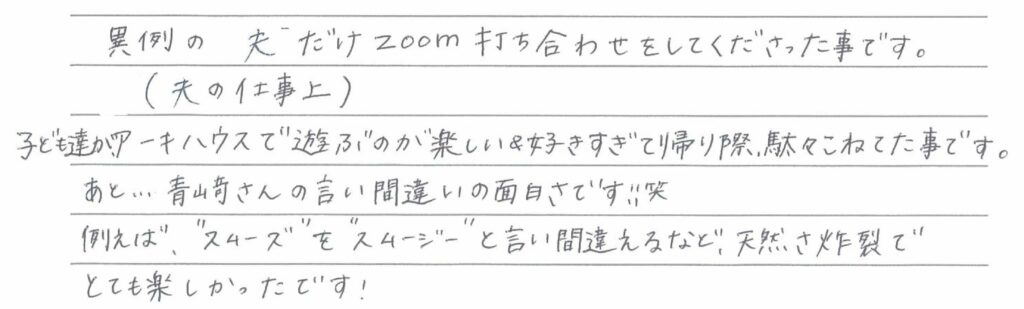 異例の 夫だけzoom打ち合わせをしてくださった事です。
(夫の仕事上)
子ども達がアーキハウスで遊ぶのが楽しい&好きすぎて帰り際、駄々こねてた事です。
あと… 青山奇さんの言い間違いの面白さです!!笑
例えば、"スムーズ"を"スムージー"と言い間違えるなど、天然さ炸裂で
とても楽しかったです!